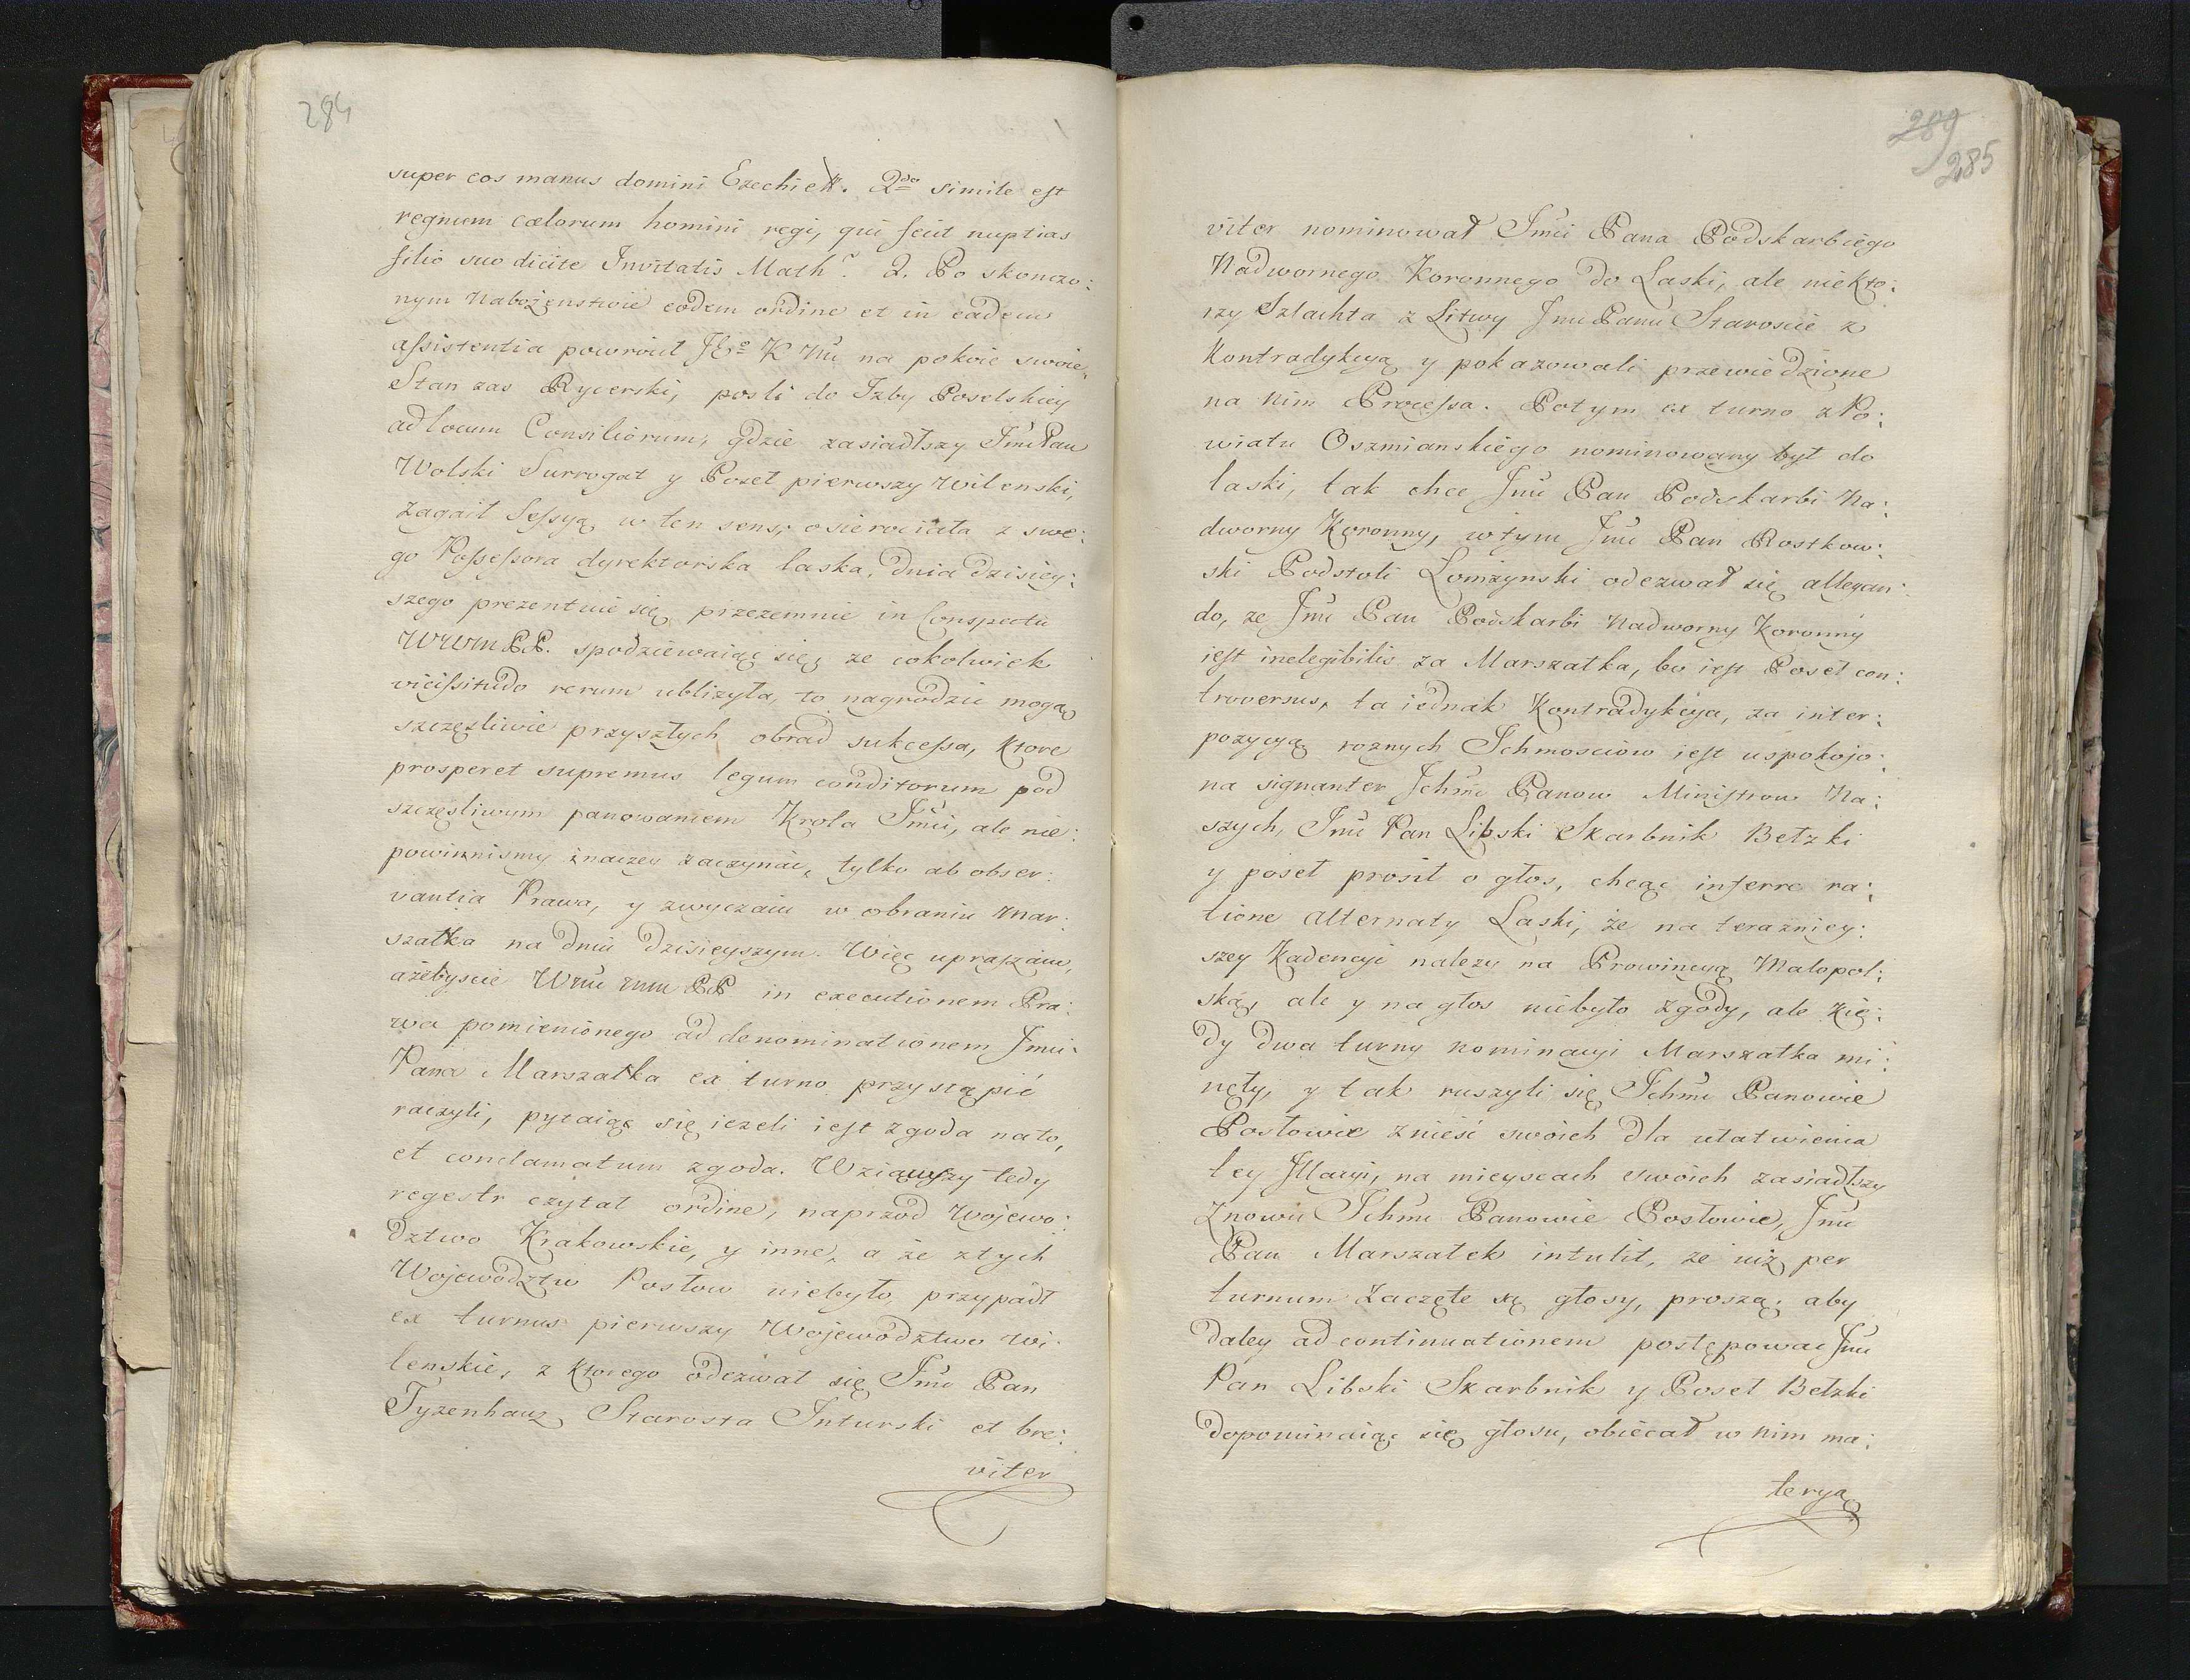 284
super eos manus domini Ezechie. 2do simile est
regnum cælorum homini regi, qui fecit nuptias
filio suo dicite Invitatis Math. 2. Po skonczo:
nym Nabożenstwie eodem ordine et in eadem
assistentia powrocił K na pokoie swoie,
Stan zas Rycerski, posli do Izby Poselskiey
ad locum Consiliorum, gdzie zasiadłszy Jmć Pan
Wolski Surrogat y Poseł pierwszy Wilenski,
zagaił Sessyą w ten sens, osierociała z swe:
go Possessora dyrektorska laska, dnia dzisiey:
szego prezentuie się przezemnie in Conspectu
WWM PP. spodziewaiąc się, ze cokolwiek
vicissitudo rerum ubliżyła, to nagrodzic mogą
szczęsliwie przyszłych obrad sukcessa, ktore
prosperet supremus legum conditorum pod
szczęsliwym panowaniem Krola Jmći, ale nie
powinnismy inaczey zaczynac, tylko ab obser:
vantia Prawa, y zwyczaiu w obraniu Mar:
szałka na dniu dzisieyszym. Więc upraszam,
ażebyscie PP in executionem Pra:
wa pomienionego ad denominationem Jmći
Pana Marszałka ex turno przystąpić
raczyli, pytaiąc się iezeli iest zgoda nato,
et conclamatum zgoda. Wziąwszy tedy
regestr czytał ordine, naprzod Wojewo:
dztwo Krakowskie, y inne, a że ztych
Wojewodztw Posłow niebyło, przypadł
ex turnus pierwszy Wojewodztwo Wi:
lenskie, z ktorego odezwał się Jmć Pan
Tyzenhauz Starosta Inturski et bre:
viter
289
285
viter nominował Jmći Pana Podskarbiego
Nadwornego Koronnego do Laski, ale niekto:
rzy Szlachta z Litwy Jmć Panu Staroscie z
Kontradykcyą y pokazowali przewiedzione
na nim Processa. Potym ex turno z Po:
wiatu Oszmianskiego nominowany był do
laski, tak chce Jmć Pan Podskarbi Na:
dworny Koronny, w tym Jmć Pan Rostkow:
ski Podstoli Łomżynski odezwał się allegan:
do, ze Jmć Pan Podskarbi Nadworny Koronny
iest inelegibilis za Marszałka, bo iest Poseł con:
troversus, ta iednak Kontradykcya, za inter:
pozycyą roznych Ichmosciow iest uspokojo:
na signanter Ichmć Panow Ministrow Na:
szych, Jmć Pan Libski Skarbnik Bełzki
y poseł prosił o głos, chcąc inferre ra:
tione alternaty Laski, że na terazniey:
szey Kadencyi nalezy na Prowincyą Małopol:
ską, ale y na głos niebyło zgody, ale kie:
dy dwa turny nominacyi Marszałka mi:
nęły, y tak ruszyli się Ichmć Panowie
Posłowie znieść swoich dla ułatwienia
tey Illacyi, na mieyscach swoich zasiadłszy
Znowu Ichmć Panowie Posłowie, Jmć
Pan Marszałek intulit, że iuż per
turnum Zaczęte są głosy, proszą, aby
daley ad continuationem postępowac Jmć
Pan Libski Skarbnik y Poseł Bełzki
dopominaiąc się głosu, obiecał w nim ma:
teryą